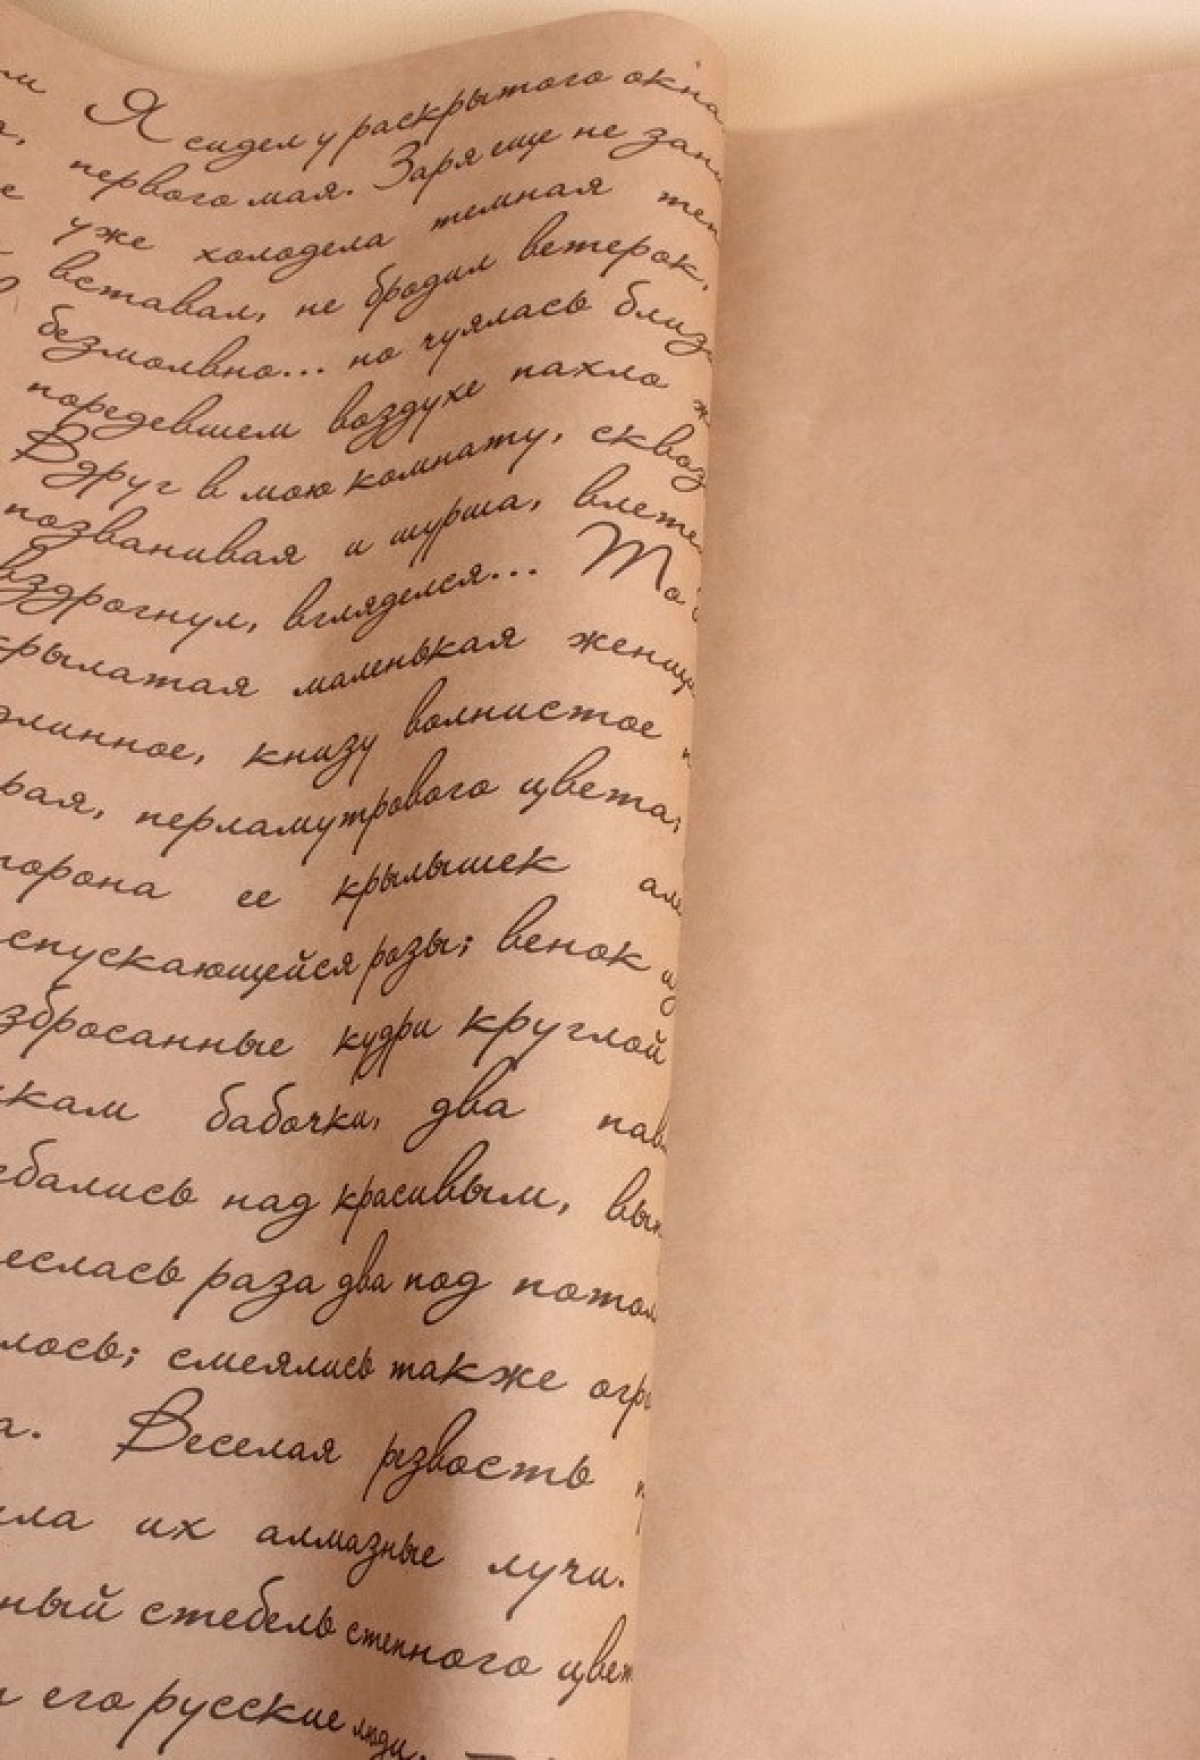 Я сидел у раскрытого окна
первого мая. Заря еще не зан
уже холодела темная теп
вставал, не бродил ветерок,
безмолвно... но чуялась близ
поредевшем воздухе пахло ж
Вдруг в мою комнату, сквоз
позванивая и шурша, влете
вздрогнул, вгляделся... То
крылатая маленькая женщ
длинное, книзу волнистое
рая, перламутрового цвета;
торона ее крылышек ал
спускающейся розы; венок и
збросанные кудри круглой
жкам бабочки, два пав
ебались над красивым, вып
еслась раза два под потол
лось; смеялись также огр
а. Веселая рзвость
ила их алмазные лучи.
ный стебель степного цвет
его русские люди.